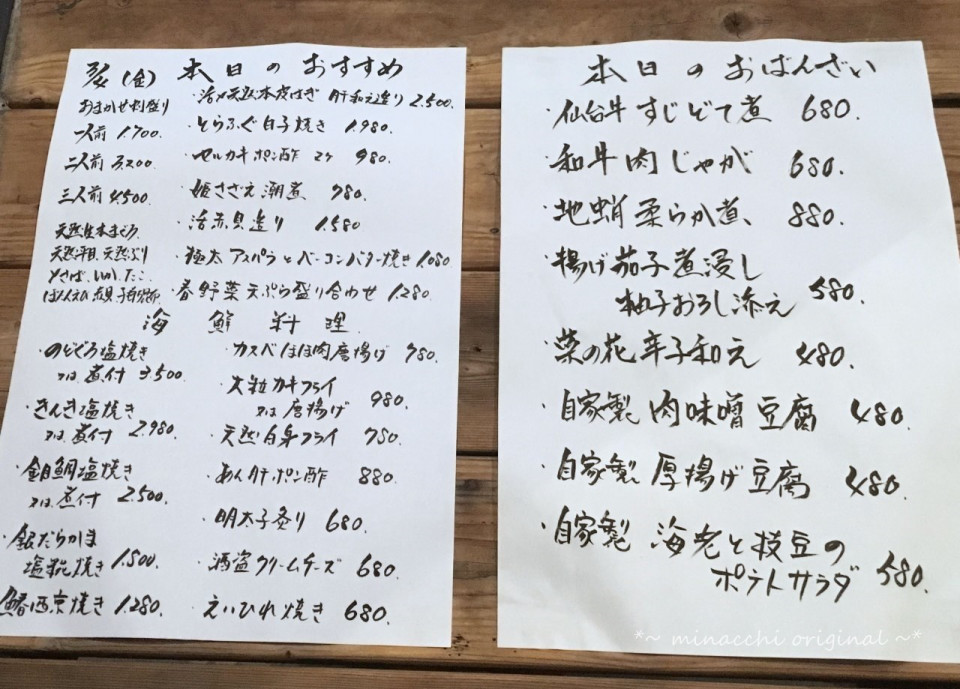 (金) 本日のおすすめ
おまかせ刺盛り
一人前 1.700
二人前 3.200
三人前 4.500
天然生本まぐろ
天然平目、天然ぶり
〆さば、いか、たこ、
ぼたんえび 赤貝 子持昆布
・活〆天然本皮はぎ 肝和え造り 2,500.
・とらふぐ白子焼き 1.980.
・セルカキポン酢 2ケ 980.
・姫さざえ潮煮 780.
・活赤貝造り 1.580
・極太アスパラとベーコンバター焼き 1.080
・春野菜天ぷら盛り合わせ 1.280.
海鮮料理
・のどぐろ塩焼き
又は煮付 3.500.
・きんき塩焼き
又は煮付 2.980.
・金目鯛塩焼き
又は煮付 2.500.
・銀だらかま
塩糀焼き 1.500.
鰆西京焼き 1.280.
・カスベほほ肉唐揚げ 780.
・大粒カキフライ
又は唐揚げ 980.
・天然白身フライ 780.
・あん肝ポン酢 880.
・明太子炙り 680.
・酒盗クリームチーズ 680.
・えいひれ焼き 680.
本日のおばんざい
・仙台牛すじどて煮 680.
・和牛肉じゃが 680.
・地蛸柔らか煮、 880.
・揚げ茄子煮浸し
柚子おろし添え 580.
・菜の花辛子和え 480.
・自家製肉味噌豆腐 480.
・自家製厚揚げ豆腐 480.
・自家製海老と枝豆の
ポテトサラダ 580.
*~ minacchi original ~*